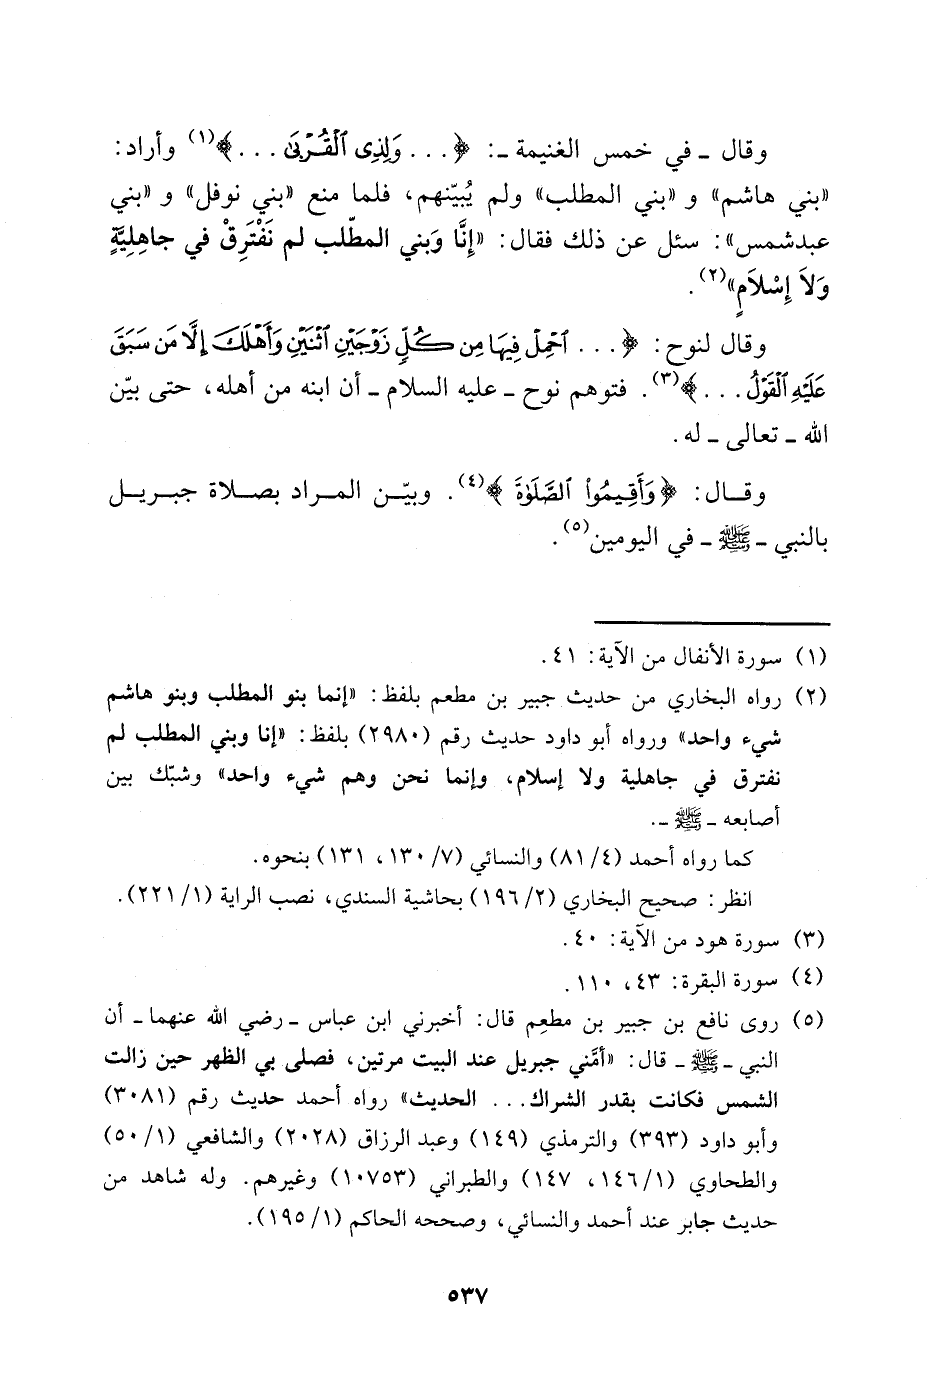 وقال ـ في خمس الغنيمة ـ: ﴿... وَلِذِى ٱلْقُرْبَىٰ ...﴾(١) وأراد:
«بني هاشم» و «بني المطلب» ولم يُبيّنهم، فلما منع «بني نوفل» و «بني
عبدشمس»: سئل عن ذلك فقال: «إِنَّا وَبني المطّلب لم نَفْتَرِقْ في جاهِلِيَّةٍ
وَلاَ إِسْلاَمٍ»(٢).
وقال لنوح: ﴿... ٱحْمِلْ فِيهَا مِن كُلٍّ زَوْجَيْنِ ٱثْنَيْنِ وَأَهْلَكَ إِلَّا مَن سَبَقَ
عَلَيْهِ ٱلْقَوْلُ ...﴾(٣). فتوهم نوح ـ عليه السلام ـ أن ابنه من أهله، حتى بيّن
الله ـ تعالى ـ له.
وقال: ﴿وَأَقِيمُوا۟ ٱلصَّلَوٰةَ﴾(٤). وبيّن المراد بصلاة جبريل
بالنبي ـ ﷺ ـ في اليومين(٥).
(١) سورة الأنفال من الآية: ٤١.
(٢) رواه البخاري من حديث جبير بن مطعم بلفظ: «إنما بنو المطلب وبنو هاشم
شيء واحد» ورواه أبو داود حديث رقم (٢٩٨٠) بلفظ: «إنا وبني المطلب لم
نفترق في جاهلية ولا إسلام، وإنما نحن وهم شيء واحد» وشبّك بين
أصابعه ـ ﷺ ـ.
كما رواه أحمد (٤/ ٨١) والنسائي (٧/ ١٣٠، ١٣١) بنحوه.
انظر: صحيح البخاري (٢/ ١٩٦) بحاشية السندي، نصب الراية (١/ ٢٢١).
(٣) سورة هود من الآية: ٤٠.
(٤) سورة البقرة: ٤٣، ١١٠.
(٥) روى نافع بن جبير بن مطعِم قال: أخبرني ابن عباس ـ رضي الله عنهما ـ أن
النبي ـ ﷺ ـ قال: «أمَّني جبريل عند البيت مرتين، فصلى بي الظهر حين زالت
الشمس فكانت بقدر الشراك... الحديث» رواه أحمد حديث رقم (٣٠٨١)
وأبو داود (٣٩٣) والترمذي (١٤٩) وعبد الرزاق (٢٠٢٨) والشافعي (١/ ٥٠)
والطحاوي (١/ ١٤٦، ١٤٧) والطبراني (١٠٧٥٣) وغيرهم. وله شاهد من
حديث جابر عند أحمد والنسائي، وصححه الحاكم (١/ ١٩٥).
٥٣٧